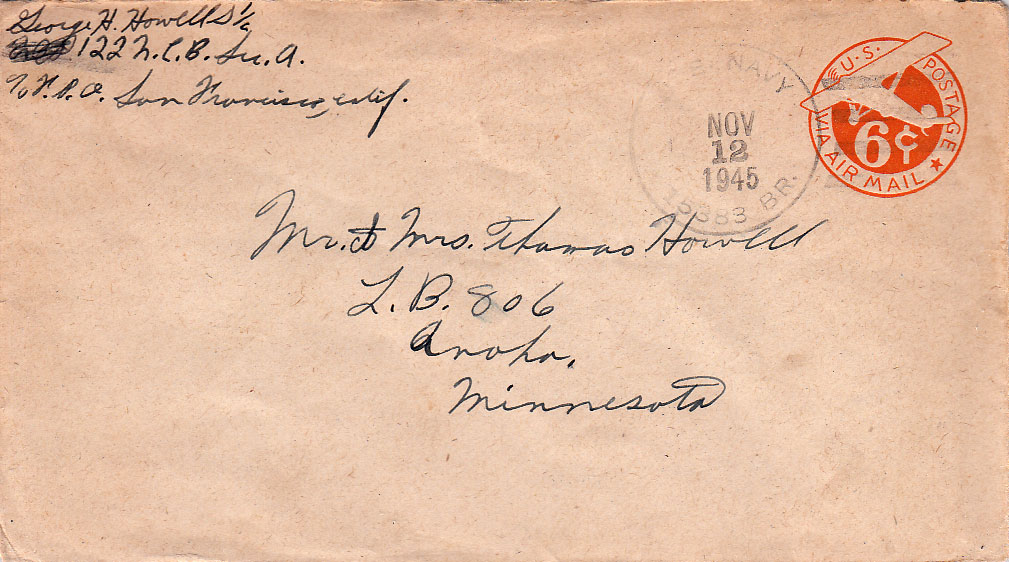 George H. Howell S 1/c
122 N.C.B. Su. A.
℅ F.P.O. San Francisco, Calif.
U.S. NAVY
NOV
12
1945
15383 BR.
U.S. POSTAGE
6¢
VIA AIR MAIL
Mr. & Mrs. Thomas Howell
L.B. 806
Anoka,
Minnesota